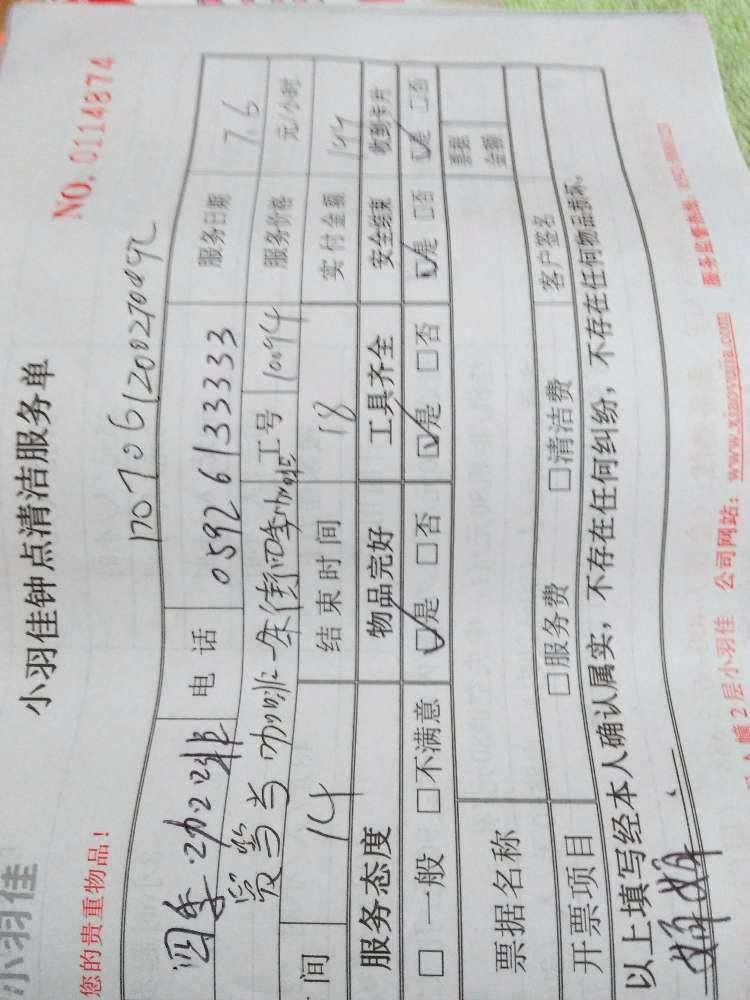 小羽佳
小羽佳钟点清洁服务单
NO.01148774
您的贵重物品！
170706120027089
四季咖啡 电话 05926133333 服务日期 7.6
工号 10094 服务价格 元/小时
间 14 结束时间 18 实付金额 144
服务态度 物品完好 工具齐全 安全结束 收到卡片
□一般 □不满意 □是 □否 □是 □否 □是 □否 □是 □否
票据名称 票据金额
开票项目 □服务费 □清洁费 客户签名
以上填写经本人确认属实，不存在任何纠纷，不存在任何物品损坏。
幢2层小羽佳 公司网站：www.xiaoyujia.com 服务监督热线：